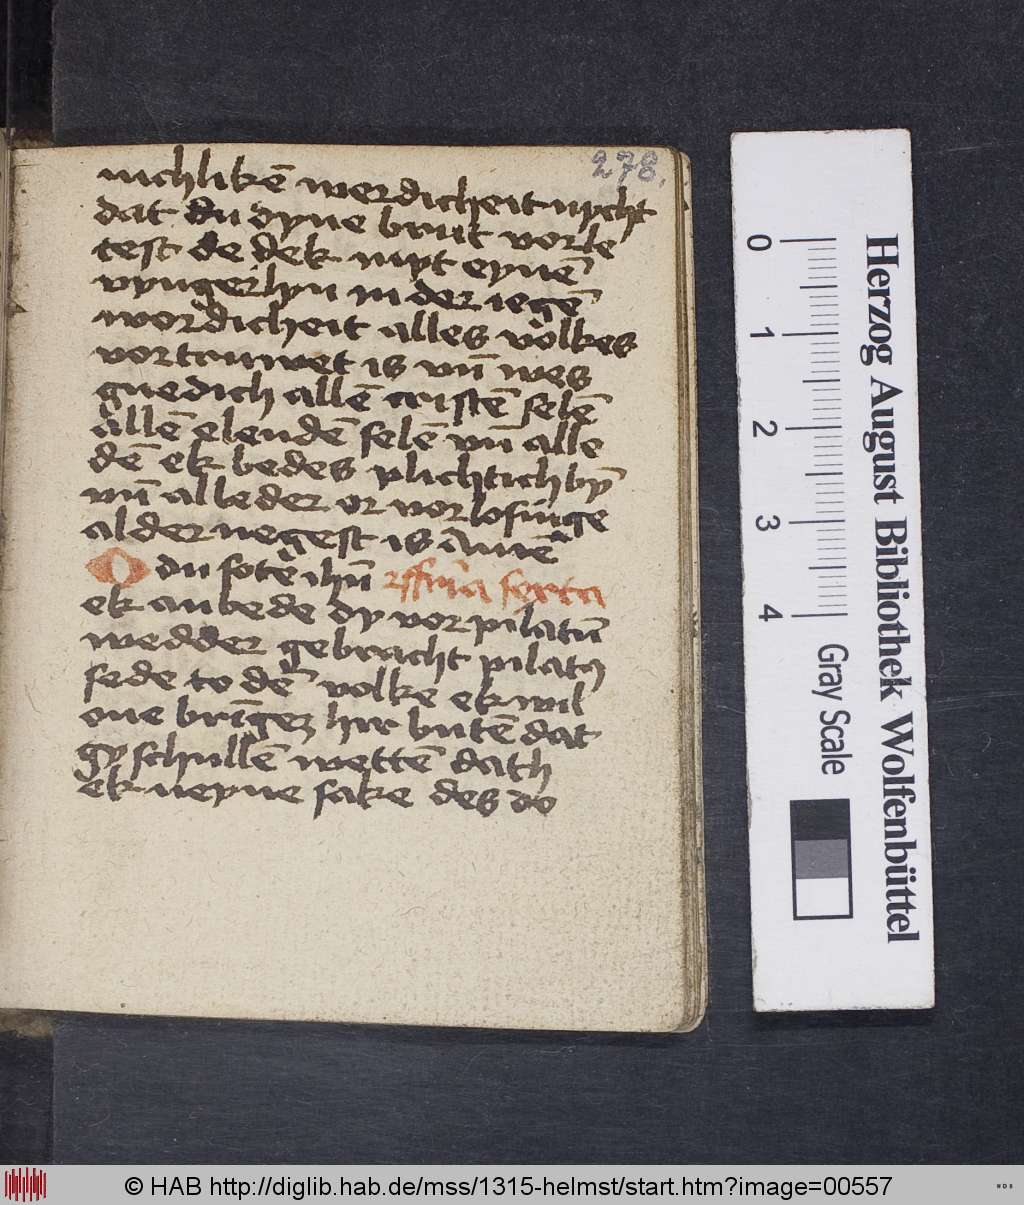 278.
nichlikē werdicheit nycht
dat du dyne brut vorle
test de dek myt eynē
vyngerlyn in der iegē
wordicheit alles volkes
vortruwet is vn̄ wes
gnedich allē cristē selē
allē elendē selē vn̄ alle
dē ek bedes plichtich bȳ
vn̄ alle der or vorlosinge
alder negest is Amē
O du sote ihū feria sexta
ek anbede dy vor pilatū
wedder gebracht pilatꝰ
sede to dē volke ek wil
one brīgē hir butē dat
gy schullē wettē dath
ek neyne sake des do
Herzog August Bibliothek Wolfenbüttel
0
1
2
3
4
Gray Scale
© HAB http://diglib.hab.de/mss/1315-helmst/start.htm?image=00557